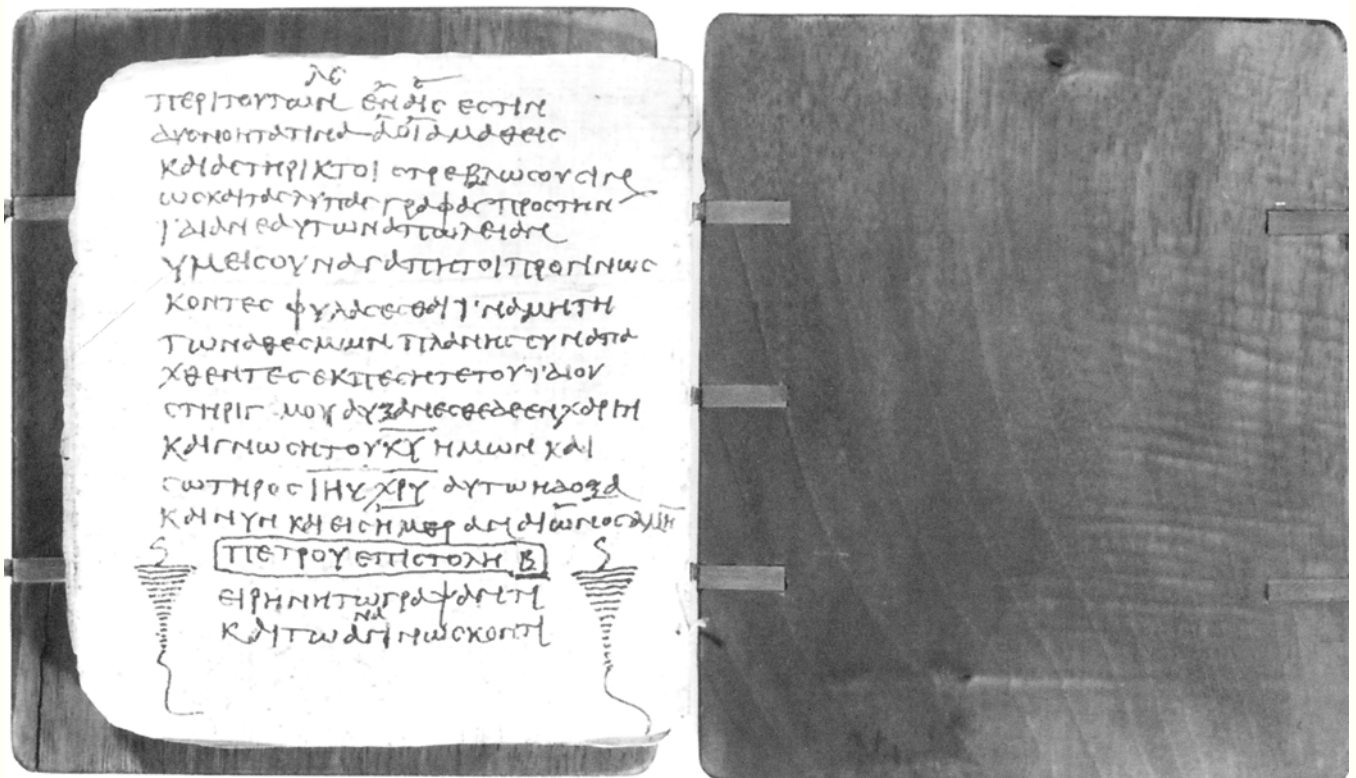 λϛ
περιτουτων εν αις εστιν
δυσνοητατινα αοιαμαθεις
καιαστηρικτοι στρεβλωσουσιν
ωσκαιταςλυπας γραφας προστην
ϊδιανεαυτωναπωλειαν
υμεισουναγαπητοιπρογινως
κοντες φυλασεσθαι ϊναμητη
τωναθεσμων πλανης συναπα
χθεντεσεκπεσητετουϊδιου
στηριγ μου αυξανεσθεδεενχαριτι
καιγνωσητουκ̅υ̅ ημων και
σωτηρος ι̅η̅υ̅ χ̅ρ̅υ̅ αυτωηδοξα
καινυν καιεισημεραν αιωνοσαμην
πετρου επιστολη β̅
ειρηνητωγραψαντι
καιτωαναγινωσκοντι